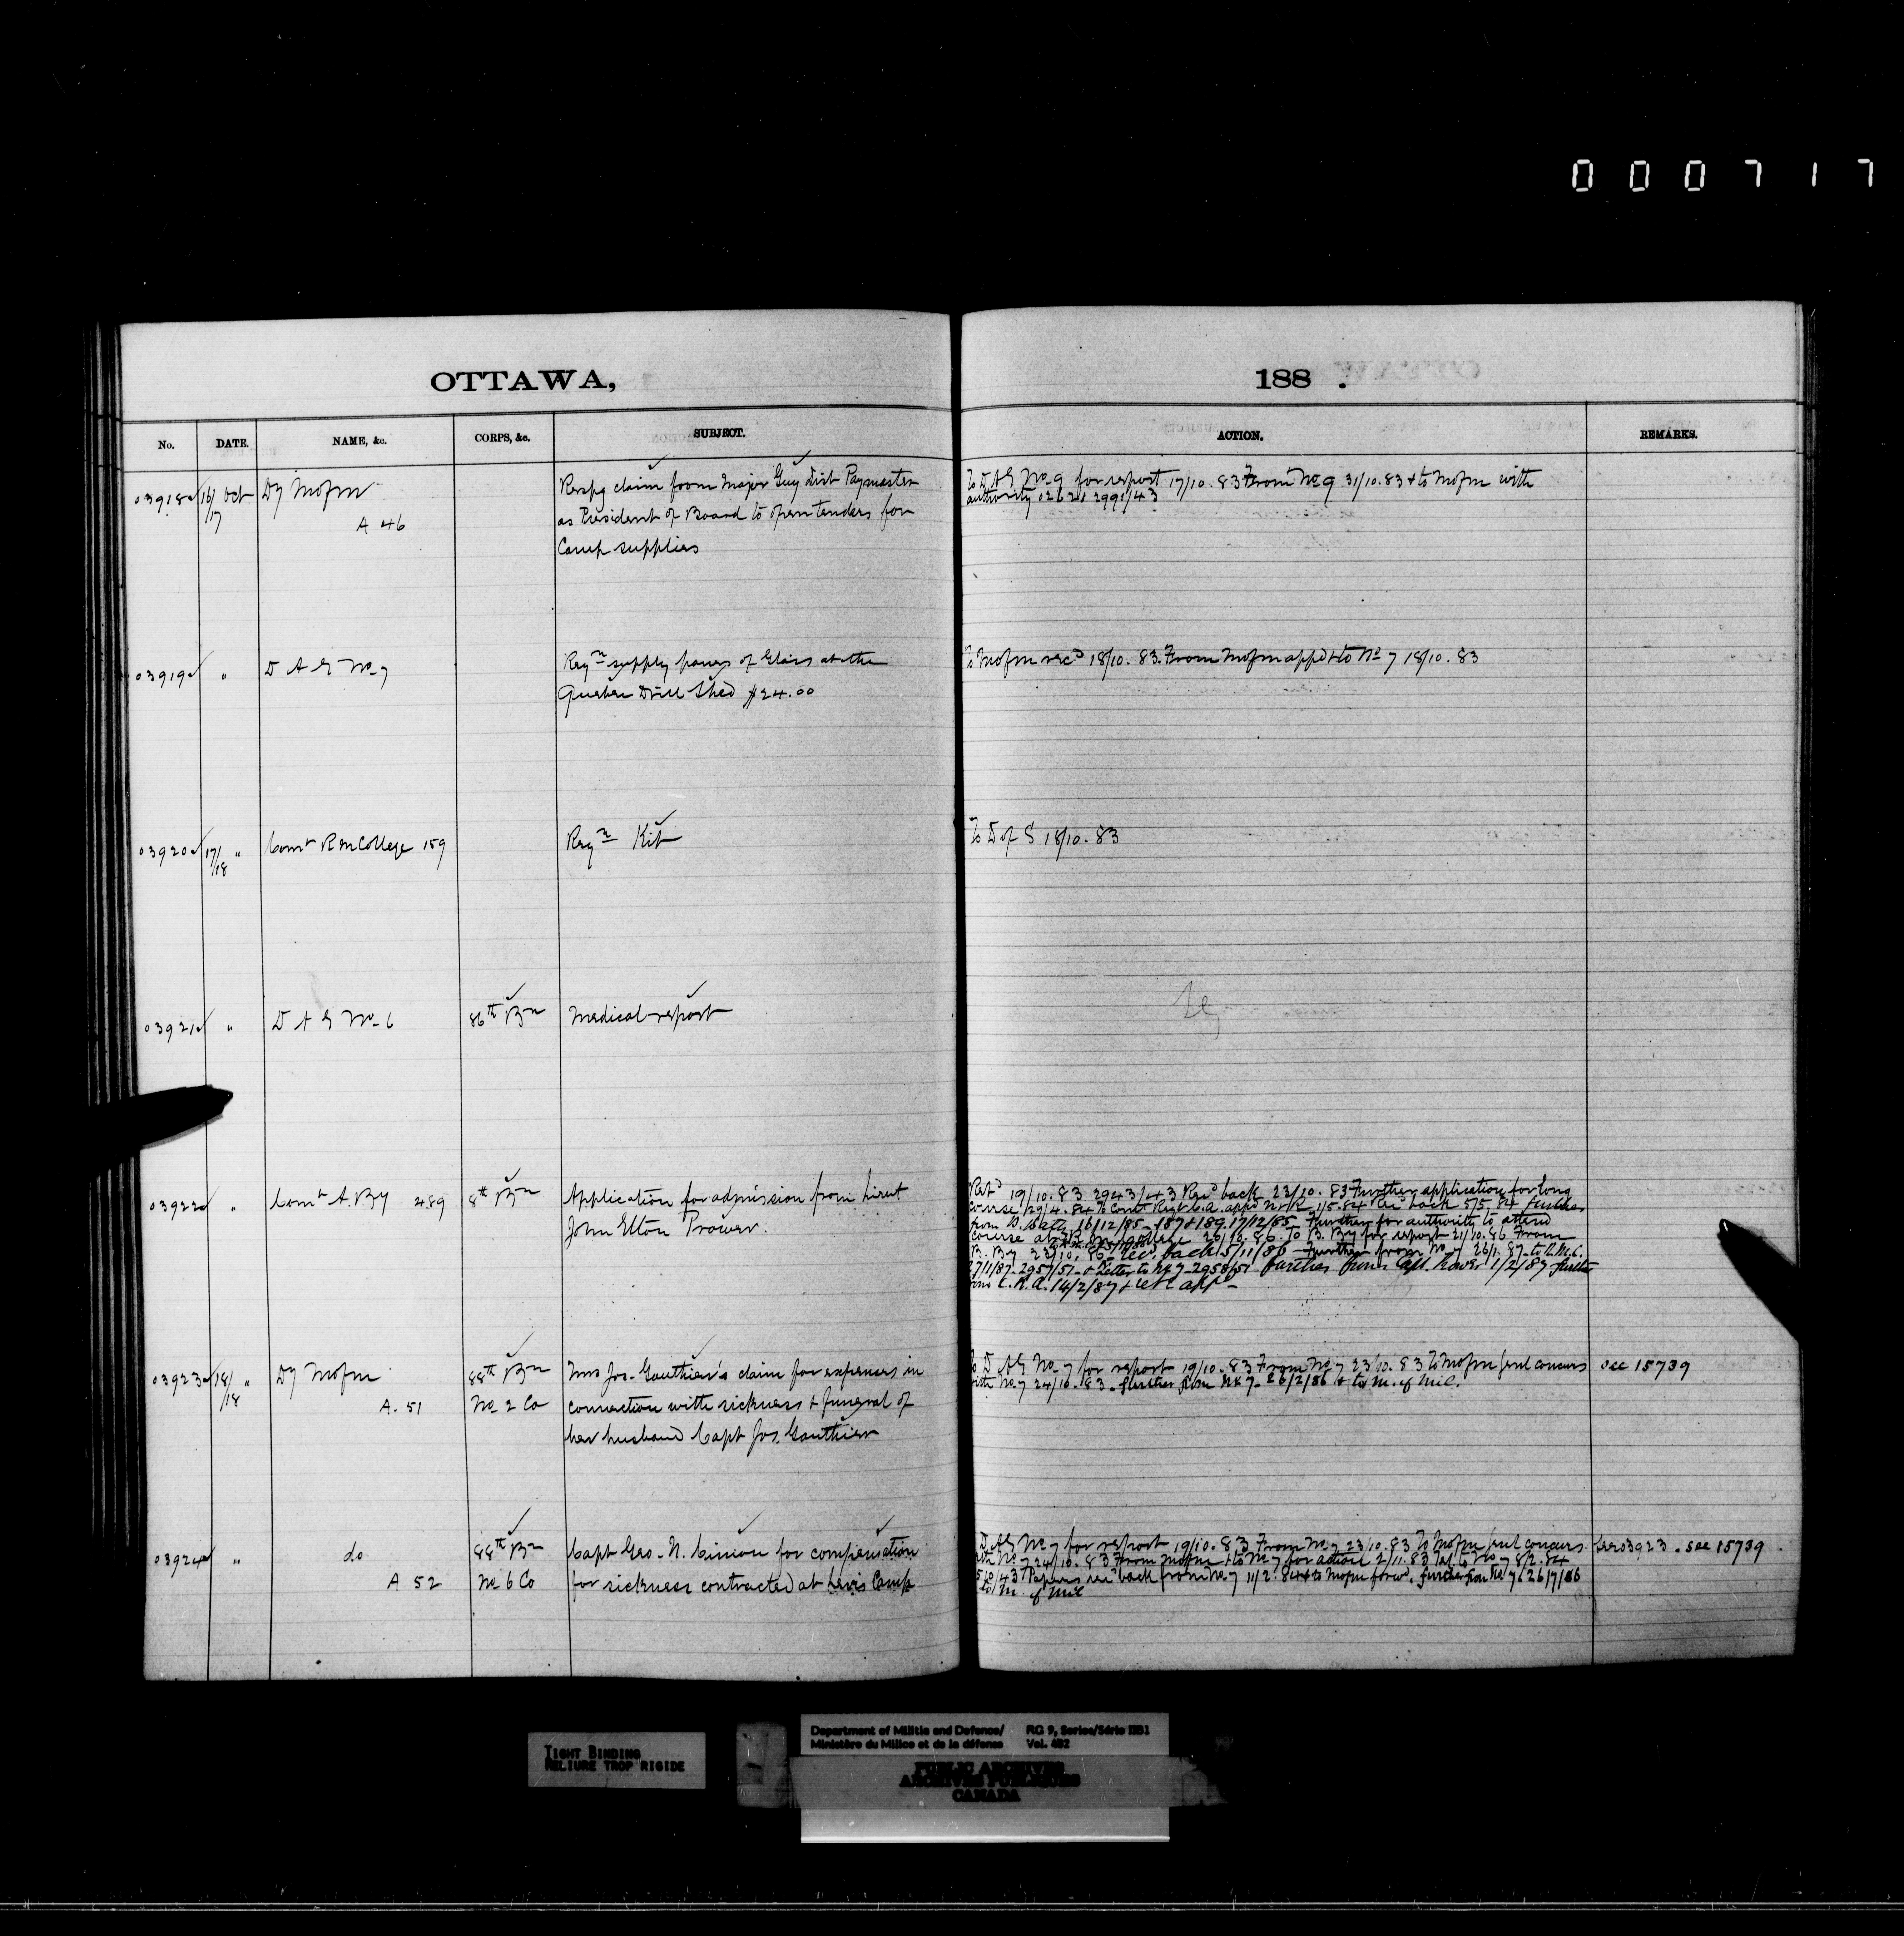 000717
OTTAWA,
188 .
No. DATE. NAME, &c. CORPS, &c. SUBJECT. ACTION. REMARKS.
03918 16/17 Oct Dy Mofm
A 46
Respg claim from Major Guy Dist Paymaster
as President of Board to open tenders for
Camp supplies
To D A G No 9 for report 17/10.83 From No 9 31/10.83 & to Mofm with
authority
03919 " D A G No 7
Reqn supply panes of Glass at the
Quebec Drill Shed $24.00
To Mofm recd 18/10.83. From Mofm appd & to No 7 18/10.83
03920 17/18 " Comt R M College 159
Reqn Kit
To D of S 18/10.83
03921 " D A G No 6 86th Bn Medical report
03922 " Comt A. By 489 8th Bn
Application for admission from Lieut
John Elton Prower.
19/10.83 2943/43 Recd back 23/10.83 Further application for long
course 29/4.84 To Comt Regt C.A. appd 1/5.84 back 5/5.84 further
from 16/12/85 - 187 & 189. 17/12/85 - Further for authority to attend
course at R. M. College 20/10.86. To B. By for report 21/10.86 From
B. By 23/10.86 - rec. back 5/11/86 - Further from No 7 26/1.87 - to R.M.C.
27/1/87 - 2957/51 - & Letter to No 7 - 2958/51 further from Capt. Prower 1/2/87 further
from C.R.A. 14/2/87
03923 18/18 " Dy Mofm
A. 51
88th Bn
No 2 Co
Mrs Jos. Gauthier's claim for expenses in
connection with sickness & funeral of
her husband Capt Jos. Gauthier
To D A G No 7 for report 19/10.83 From No 7 23/10.83 To Mofm genl concurs
with No 7 24/10.83 - further from No 7 - 26/2/86 & to M. of Mil.
see 15739
03924 " do
A 52
88th Bn
No 6 Co
Capt Geo. N. for compensation
for sickness contracted at Levis Camp
D A G No 7 for report 19/10.83 From No 7 23/10.83 To Mofm genl concurs
with No 7 24/10.83 From Mofm & to No 7 for action 2/11.83 to No 7 8/2.84
Papers recd back from No 7 11/2.84 & to Mofm forwd. further from No 7 26/7/86
to M. of Mil
see 03923. see 15739.
TIGHT BINDING
RELIURE TROP RIGIDE
Department of Militia and Defence/
Ministère du Milice et de la défense
RG 9, Series/Série IIB1
Vol. 482
PUBLIC ARCHIVES
ARCHIVES PUBLIQUES
CANADA